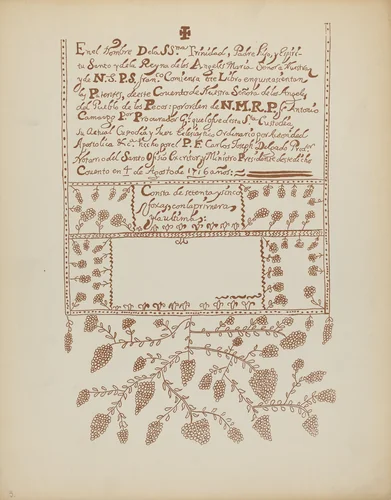 En el Nombre De la SSma Trinidad, Padre, Hijo, y Espiri-
tu Santo y de la Reyna de los Angeles Maria Señora Nuestra
y de N. S. P. S. Franco Comiensa este Libro en que se asientan
los Patentes, de este Conuento de Nuestra Señora de los Angeles
del Pueblo de los Pecos: por orden de N. M. R. P. Fr. Antonio
Camargo Por Procurador Gl que fue desta Sta Custodia
su Actual Custodio y Juez Eclesiastico Ordinario por Autoridad
Apostolica &c. hecho por el P. F. Carlos Joseph Delgado Predr
Notorio del Santo Ofisio Ex cistor y Ministro Presidente desde dicho
Conuento en 4 de Agosto de 1716 años:
Consta de setenta y sinco
foxas, con la primera
y la ultima: